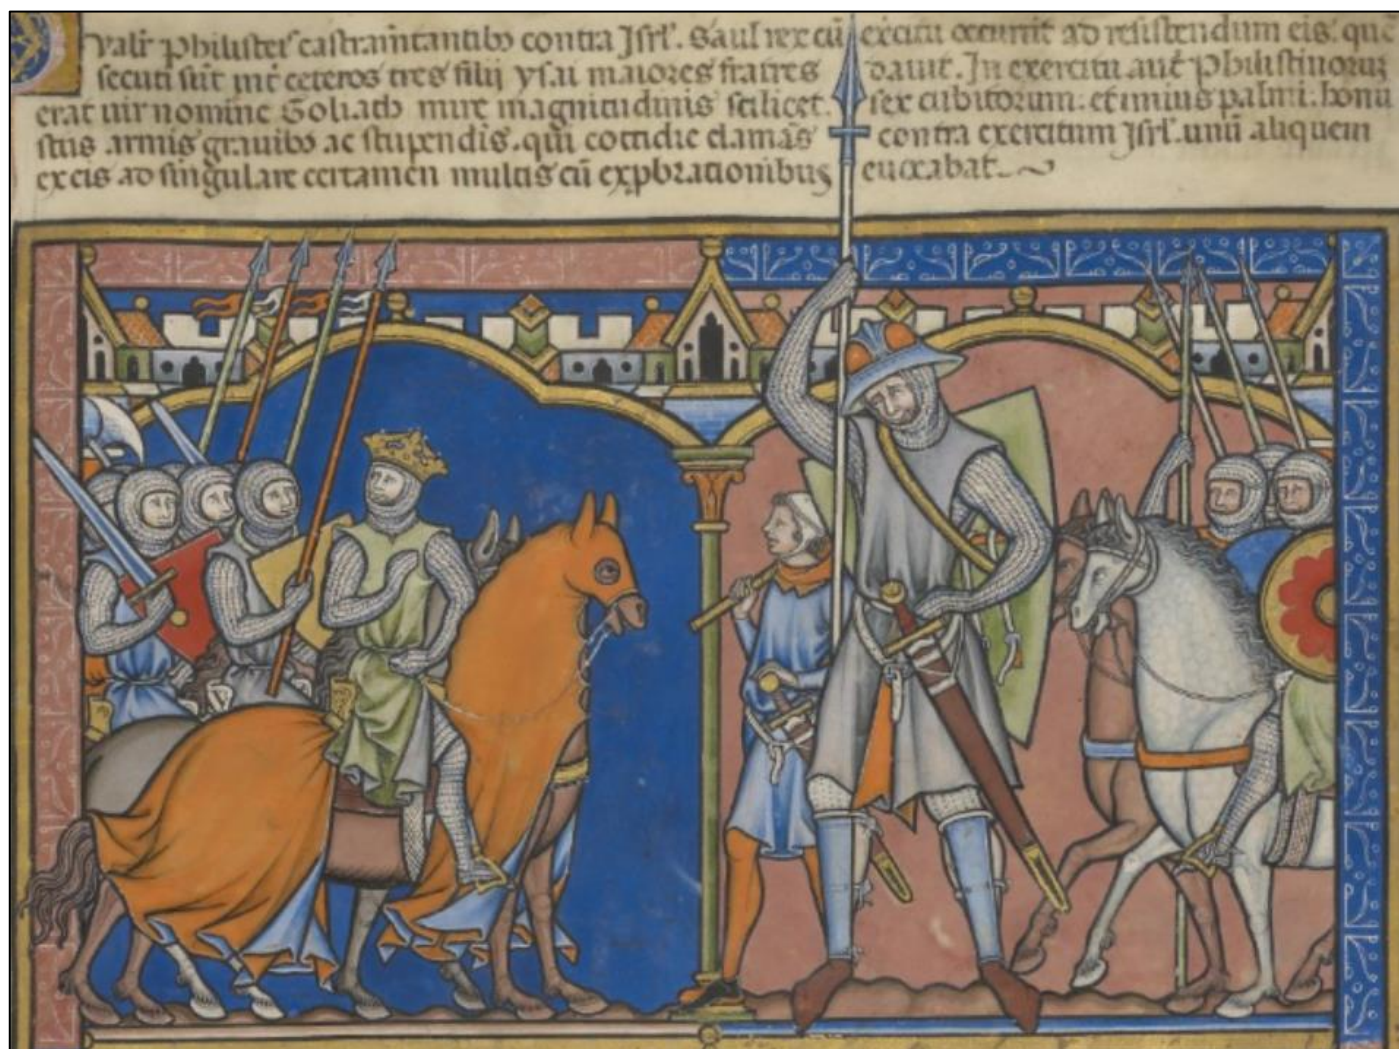 Qualiter Philisteis castramentantibus contra Isrl'. Saul rex cū exercitu occurrit ad resistendum eis. quē
secuti sūt int̄ ceteros tres filij ysai maiores fratres dauit. In exercitu aut̄ Philistinorum
erat uir nomine Goliath mire magnitudinis scilicet. sex cubitorum. et unius palmi. honu
stus armis grauibꝫ ac stupendis. qui cottidie clamās contra exercitum Isrl'. unū aliquem
ex eis ad singulare certamen multis cū exprobrationibus euocabat.